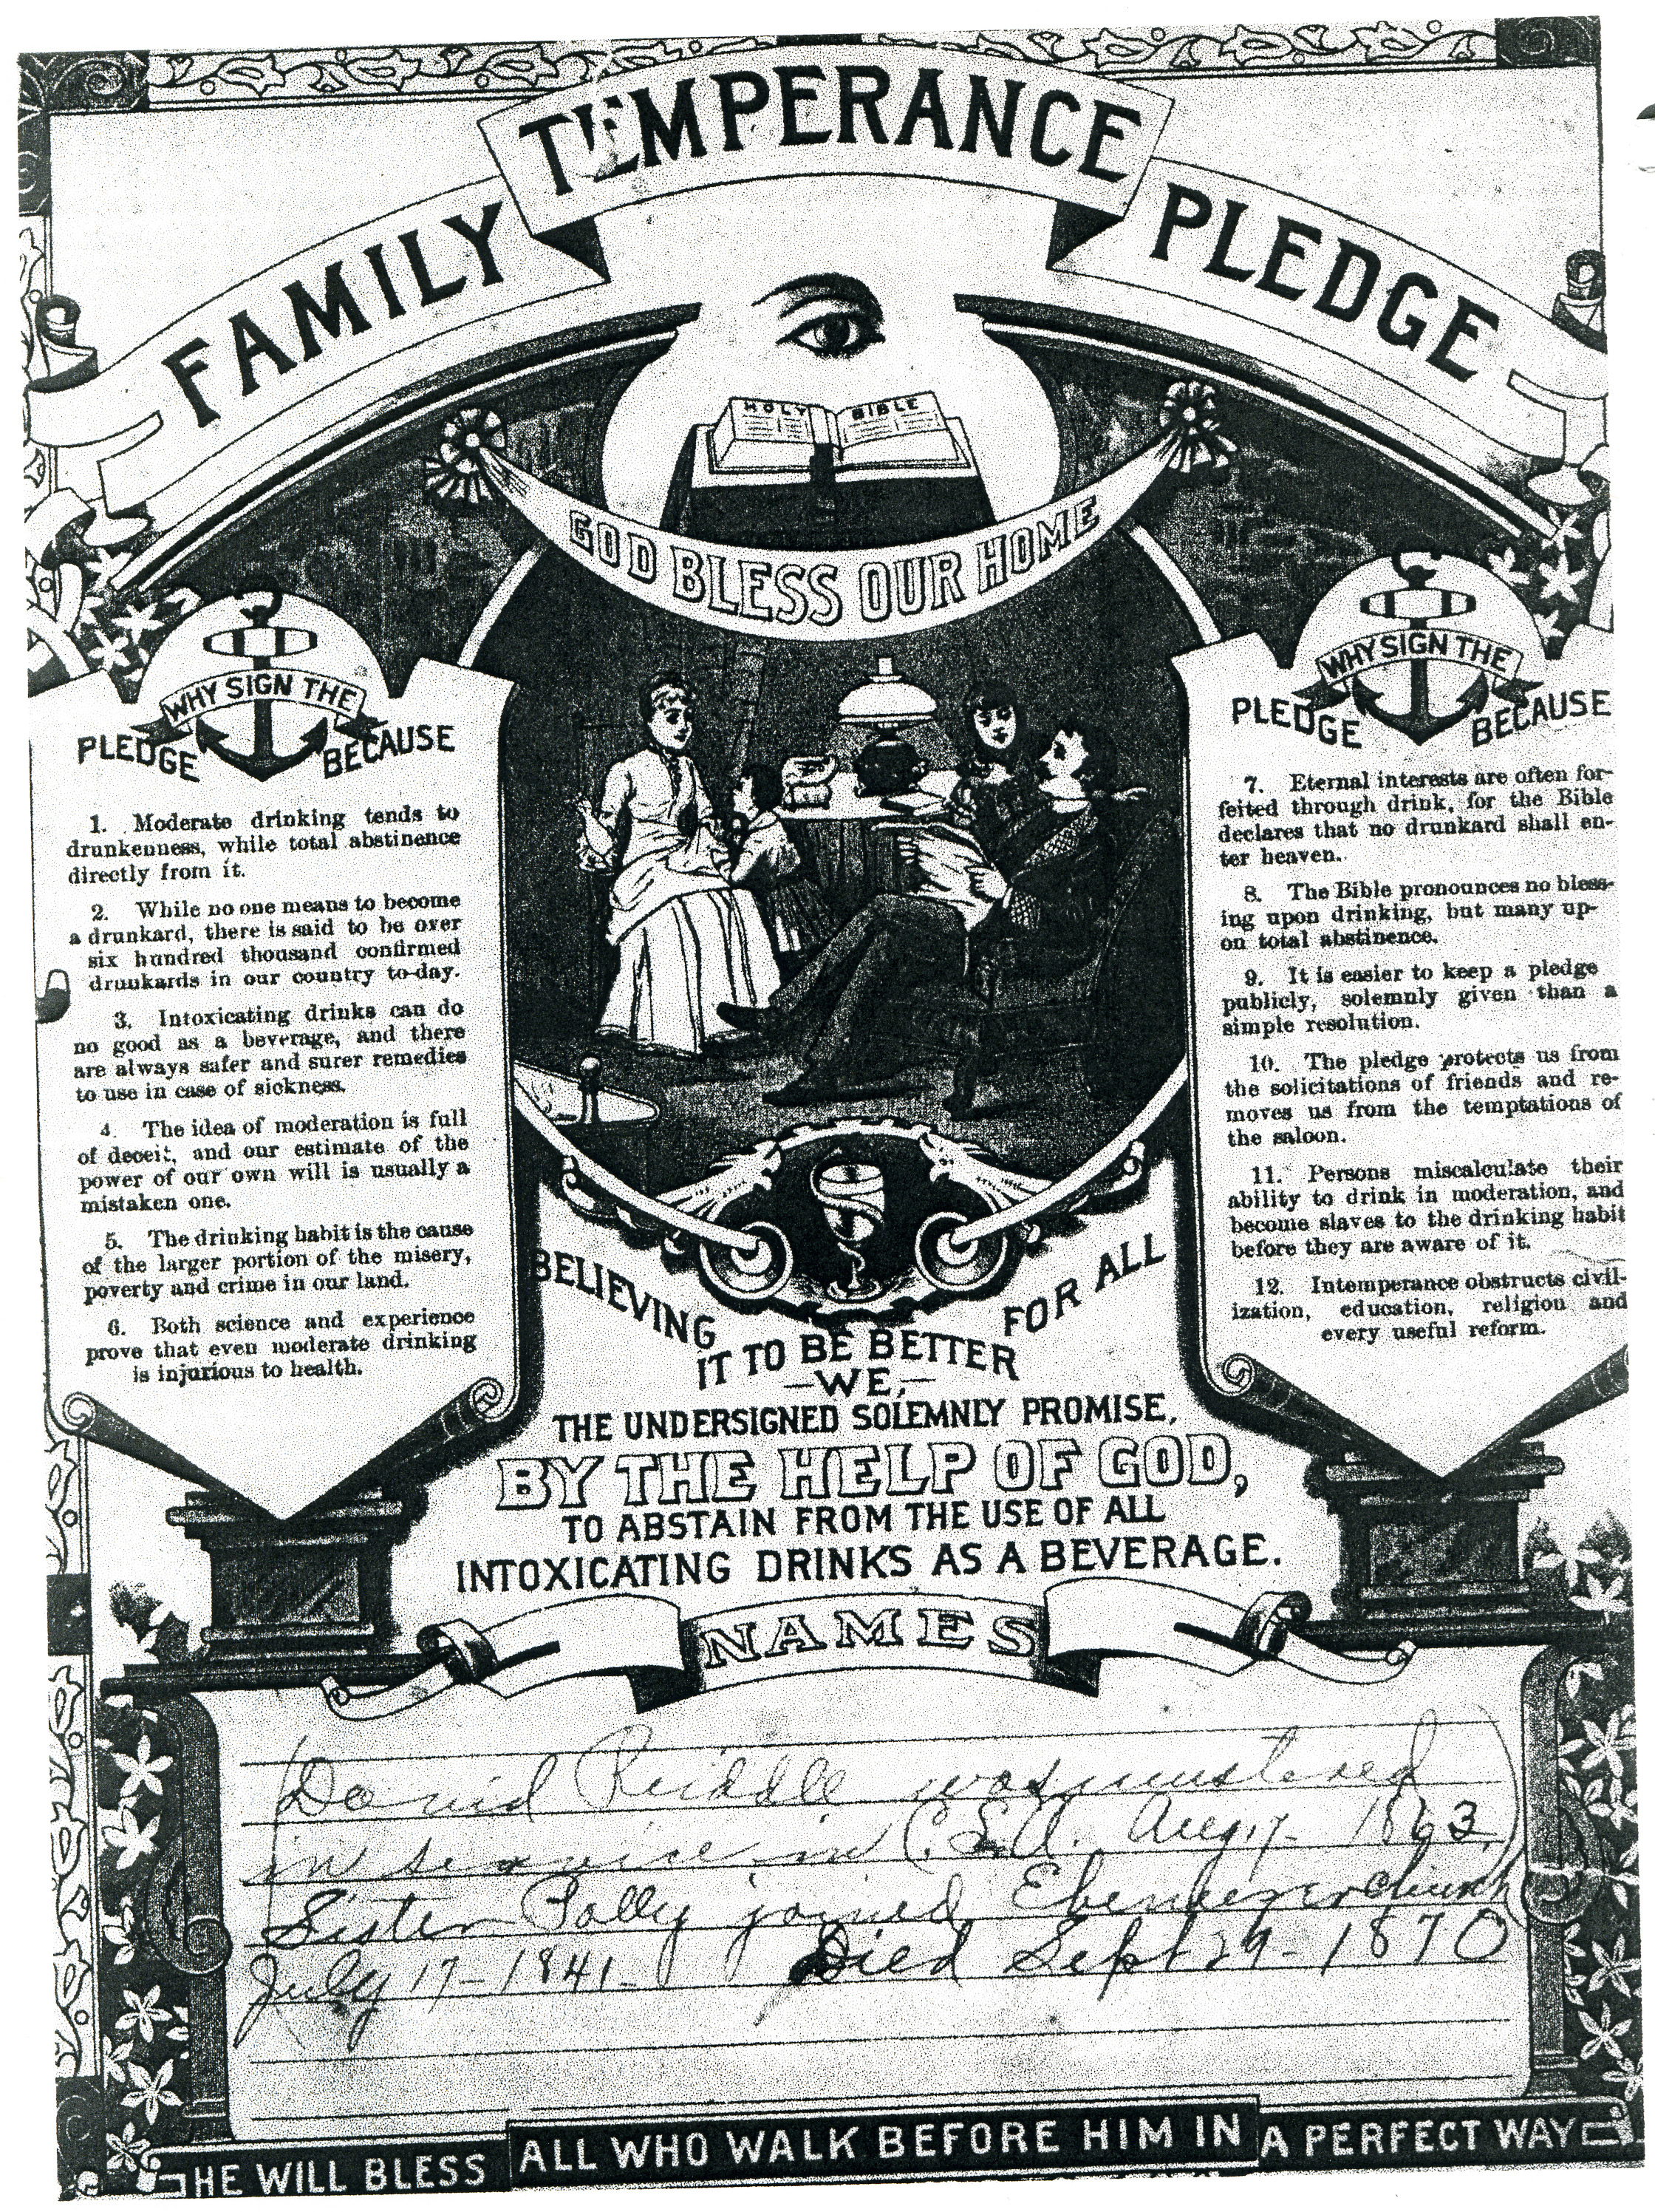 FAMILY TEMPERANCE PLEDGE
HOLY BIBLE
GOD BLESS OUR HOME
WHY SIGN THE
PLEDGE BECAUSE
1. Moderate drinking tends to
drunkenness, while total abstinence
directly from it.
2. While no one means to become
a drunkard, there is said to be over
six hundred thousand confirmed
drunkards in our country to-day.
3. Intoxicating drinks can do
no good as a beverage, and there
are always safer and surer remedies
to use in case of sickness.
4. The idea of moderation is full
of deceit, and our estimate of the
power of our own will is usually a
mistaken one.
5. The drinking habit is the cause
of the larger portion of the misery,
poverty and crime in our land.
6. Both science and experience
prove that even moderate drinking
is injurious to health.
WHY SIGN THE
PLEDGE BECAUSE
7. Eternal interests are often for-
feited through drink, for the Bible
declares that no drunkard shall en-
ter heaven.
8. The Bible pronounces no bless-
ing upon drinking, but many up-
on total abstinence.
9. It is easier to keep a pledge
publicly, solemnly given than a
simple resolution.
10. The pledge protects us from
the solicitations of friends and re-
moves us from the temptations of
the saloon.
11. Persons miscalculate their
ability to drink in moderation, and
become slaves to the drinking habit
before they are aware of it.
12. Intemperance obstructs civil-
ization, education, religion and
every useful reform.
BELIEVING
IT TO BE BETTER
FOR ALL
—WE,—
THE UNDERSIGNED SOLEMNLY PROMISE,
BY THE HELP OF GOD,
TO ABSTAIN FROM THE USE OF ALL
INTOXICATING DRINKS AS A BEVERAGE.
NAMES
(David Riddle was mustered
in service in C.S.A. Aug. 7- 1863)
Sister Polly joined Ebenezer church
July 17-1841- Died Sept 29-1870
HE WILL BLESS ALL WHO WALK BEFORE HIM IN A PERFECT WAY